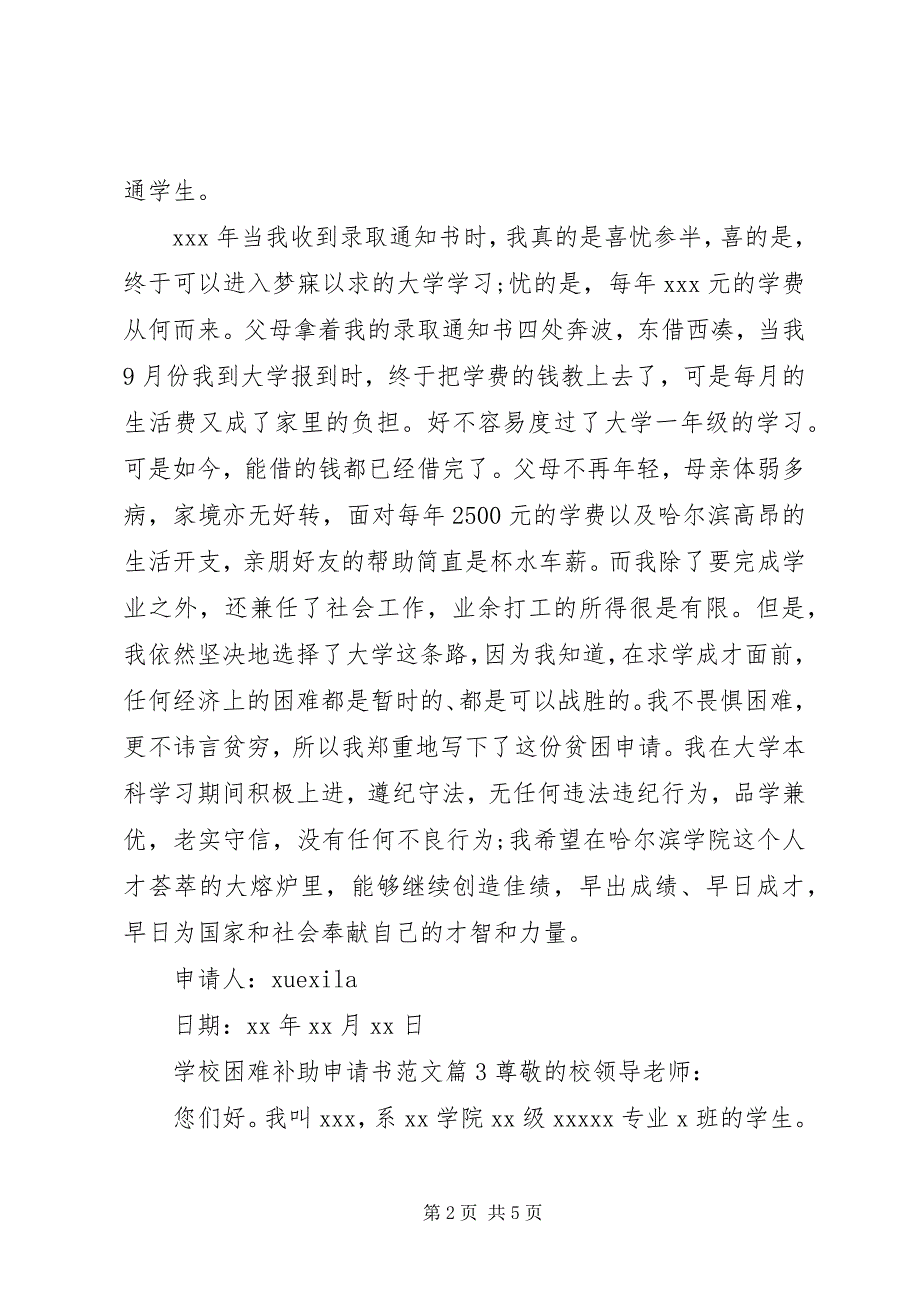 通学生。
xxx 年当我收到录取通知书时，我真的是喜忧参半，喜的是，
终于可以进入梦寐以求的大学学习;忧的是，每年 xxx 元的学费
从何而来。父母拿着我的录取通知书四处奔波，东借西凑，当我
9 月份我到大学报到时，终于把学费的钱教上去了，可是每月的
生活费又成了家里的负担。好不容易度过了大学一年级的学习。
可是如今，能借的钱都已经借完了。父母不再年轻，母亲体弱多
病，家境亦无好转，面对每年 2500 元的学费以及哈尔滨高昂的
生活开支，亲朋好友的帮助简直是杯水车薪。而我除了要完成学
业之外，还兼任了社会工作，业余打工的所得很是有限。但是，
我依然坚决地选择了大学这条路，因为我知道，在求学成才面前，
任何经济上的困难都是暂时的、都是可以战胜的。我不畏惧困难，
更不讳言贫穷，所以我郑重地写下了这份贫困申请。我在大学本
科学习期间积极上进，遵纪守法，无任何违法违纪行为，品学兼
优，老实守信，没有任何不良行为;我希望在哈尔滨学院这个人
才荟萃的大熔炉里，能够继续创造佳绩，早出成绩、早日成才，
早日为国家和社会奉献自己的才智和力量。
申请人：xuexila
日期：xx 年 xx 月 xx 日
学校困难补助申请书范文篇 3 尊敬的校领导老师：
您们好。我叫 xxx，系 xx 学院 xx 级 xxxxx 专业 x 班的学生。
第 2 页 共 5 页